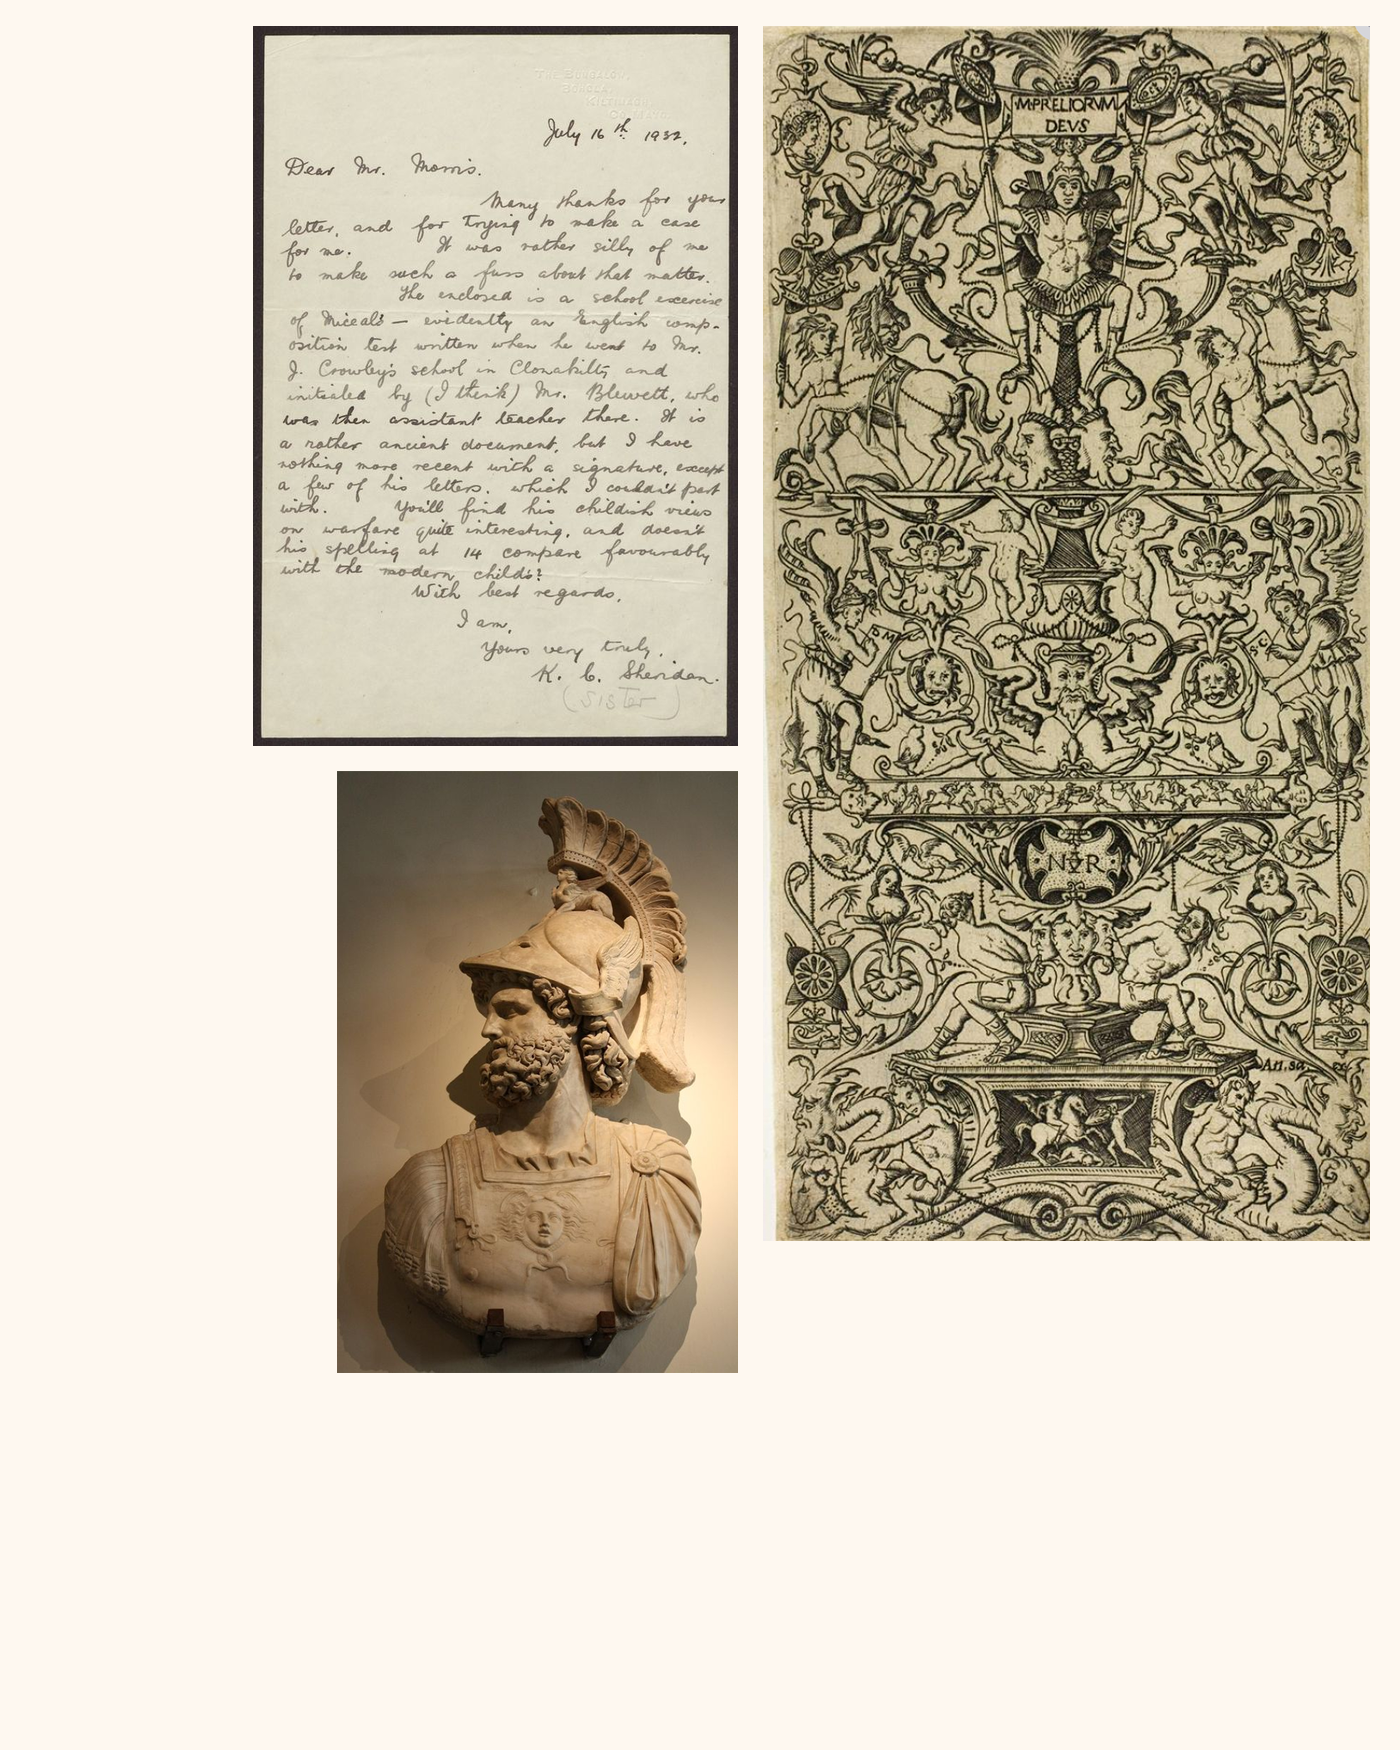 THE BUNGALOW,
KILTIMAGH,
July 16th 1932.
Dear Mr. Morris.
Many thanks for your
letter, and for trying to make a case
for me. It was rather silly of me
to make such a fuss about that matter.
The enclosed is a school exercise
of Miceál's — evidently an English comp-
osition test written when he went to Mr.
J. Crowley's school in Clonakilty and
initialed by (I think) Mr. Blewett, who
was then assistant teacher there. It is
a rather ancient document, but I have
nothing more recent with a signature, except
a few of his letters, which I couldn't part
with. You'll find his childish views
on warfare quite interesting, and doesn't
his spelling at 14 compare favourably
with the modern child's?
With best regards,
I am,
Yours very truly,
K. C. Sheridan.
(Sister)
M·PRELIORVM
DEVS
D M
S C
N R
Ant. sa. ex.